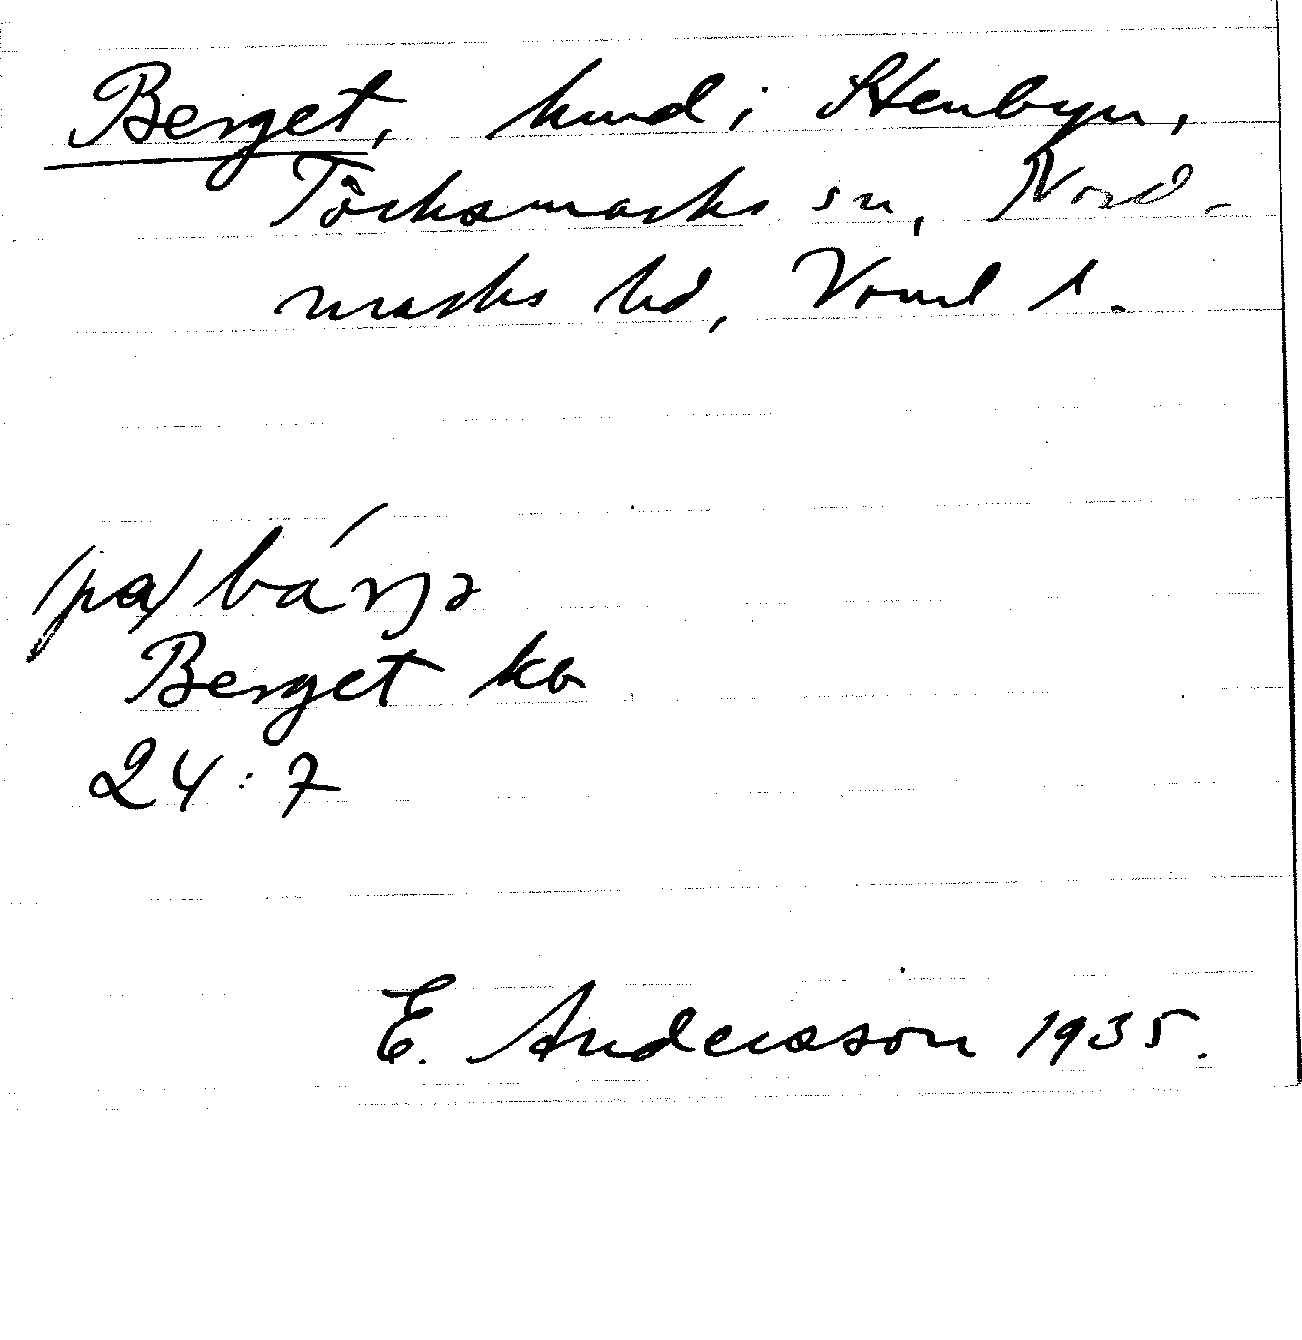 Berget, hmd i Stenbyn,
Töcksmarks sn, Nord-
marks hd, Vrml l.
(pa) bárjə
Berget kb
24:7
E. Andersson 1935.